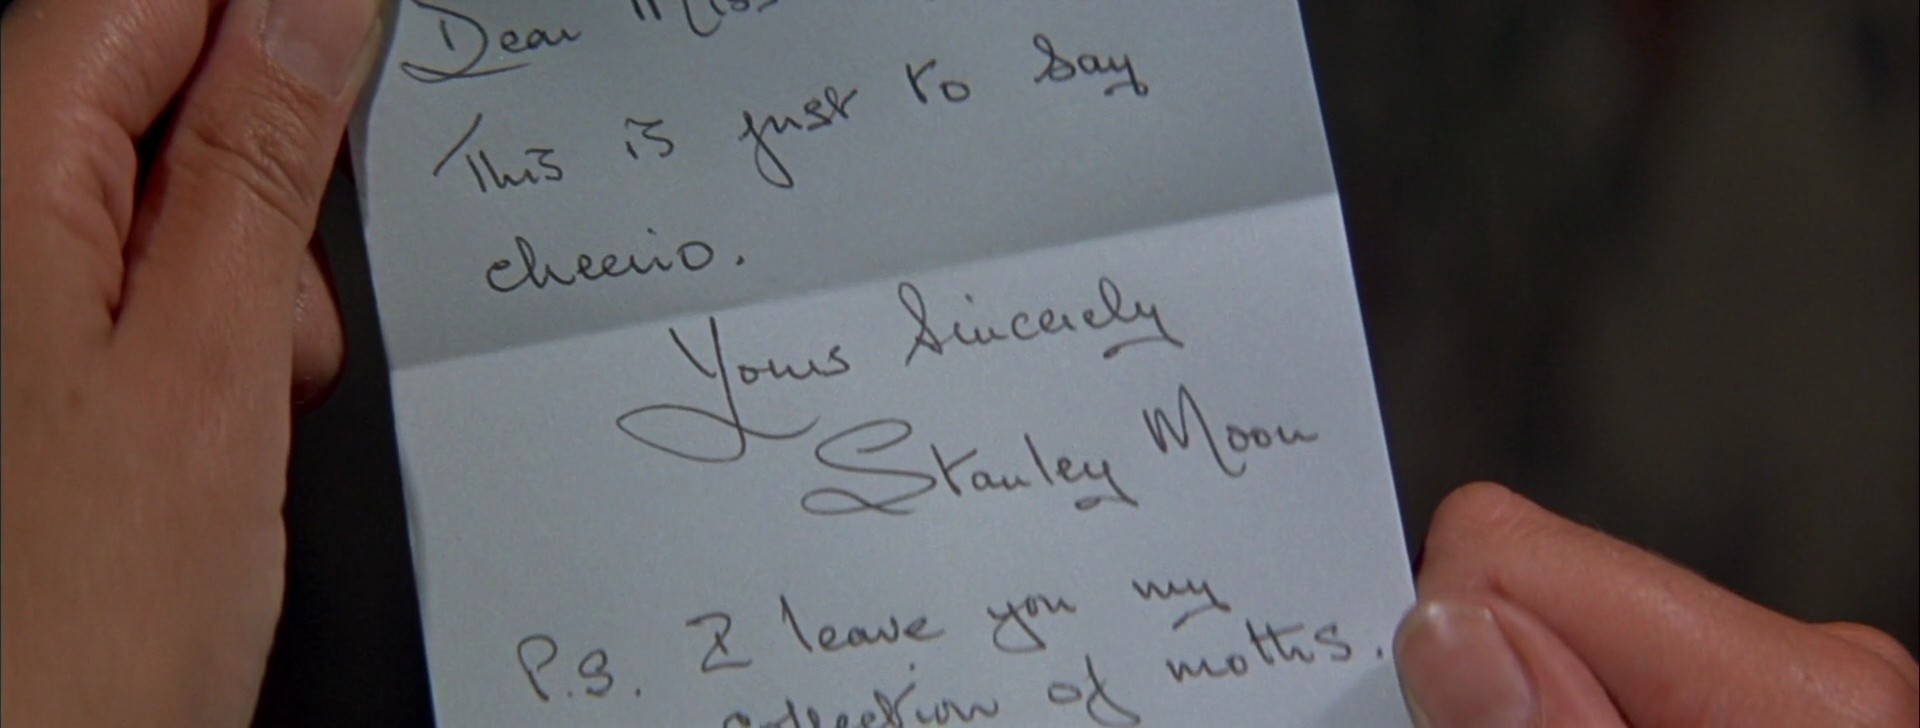 Dear Miss
This is just to say
cheerio.
Yours Sincerely
Stanley Moon
P.S. I leave you my
collection of moths.